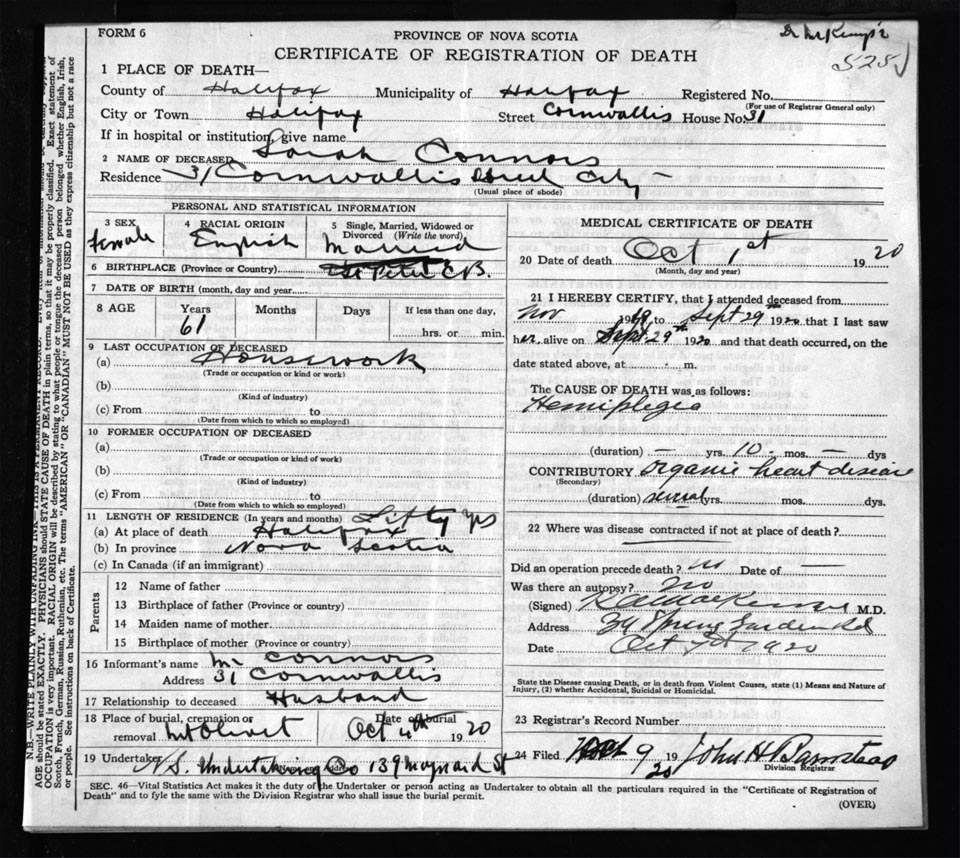 FORM 6
PROVINCE OF NOVA SCOTIA
CERTIFICATE OF REGISTRATION OF DEATH
525
1 PLACE OF DEATH—
County of Halifax Municipality of Halifax Registered No.
(For use of Registrar General only)
City or Town Halifax Street Cornwallis House No. 31
If in hospital or institution, give name
2 NAME OF DECEASED Sarah Connors
Residence 31 Cornwallis Street City
(Usual place of abode)
PERSONAL AND STATISTICAL INFORMATION
3 SEX female
4 RACIAL ORIGIN English
5 Single, Married, Widowed or Divorced (Write the word) Married
6 BIRTHPLACE (Province or Country) St Peter C.B.
7 DATE OF BIRTH (month, day and year)
8 AGE Years 61 Months Days If less than one day, hrs. or min.
9 LAST OCCUPATION OF DECEASED
(a) Housework
(Trade or occupation or kind or work)
(b)
(Kind of industry)
(c) From to
(Date from which to which so employed)
10 FORMER OCCUPATION OF DECEASED
(a)
(Trade or occupation or kind of work)
(b)
(Kind of industry)
(c) From to
(Date from which to which so employed)
11 LENGTH OF RESIDENCE (In years and months) Fifty yrs
(a) At place of death Halifax
(b) In province Nova Scotia
(c) In Canada (if an immigrant)
Parents
12 Name of father
13 Birthplace of father (Province or country)
14 Maiden name of mother
15 Birthplace of mother (Province or country)
16 Informant's name Mr Connors
Address 31 Cornwallis
17 Relationship to deceased Husband
18 Place of burial, cremation or removal Mt Olivet Date of burial Oct 4th 1920
19 Undertaker N.S. Undertaking Co 139 Maynard St
MEDICAL CERTIFICATE OF DEATH
20 Date of death Oct 1st 1920
(Month, day and year)
21 I HEREBY CERTIFY, that I attended deceased from
Nov 1919 to Sept 29th 1920 that I last saw
her alive on Sept 29th 1920 and that death occurred, on the
date stated above, at m.
The CAUSE OF DEATH was as follows:
Hemiplegia
(duration) — yrs. 10 mos. — dys
CONTRIBUTORY organic heart disease
(Secondary)
(duration) several yrs. mos. dys.
22 Where was disease contracted if not at place of death?
Did an operation precede death? no Date of —
Was there an autopsy? no
(Signed) M.D.
Address 34 Spring Garden Rd
Date Oct 7th 1920
State the Disease causing Death, or in death from Violent Causes, state (1) Means and Nature of
Injury, (2) whether Accidental, Suicidal or Homicidal.
23 Registrar's Record Number
24 Filed Oct 9 1920 John H Barnstead
Division Registrar
SEC. 46—Vital Statistics Act makes it the duty of the Undertaker or person acting as Undertaker to obtain all the particulars required in the "Certificate of Registration of
Death" and to fyle the same with the Division Registrar who shall issue the burial permit.
(OVER)
N.B.—WRITE PLAINLY WITH UNFADING INK—THIS IS A PERMANENT RECORD.
AGE should be stated EXACTLY. PHYSICIANS should STATE CAUSE OF DEATH in plain terms, so that it may be properly classified. Exact statement of
OCCUPATION is very important. RACIAL ORIGIN will be described by stating to what people or tongue the deceased person belonged whether English, Irish,
Scotch, French, German, Russian, Ruthenian, etc. The terms "AMERICAN" OR "CANADIAN" MUST NOT BE USED as they express citizenship but not a race
or people. See instructions on back of Certificate.